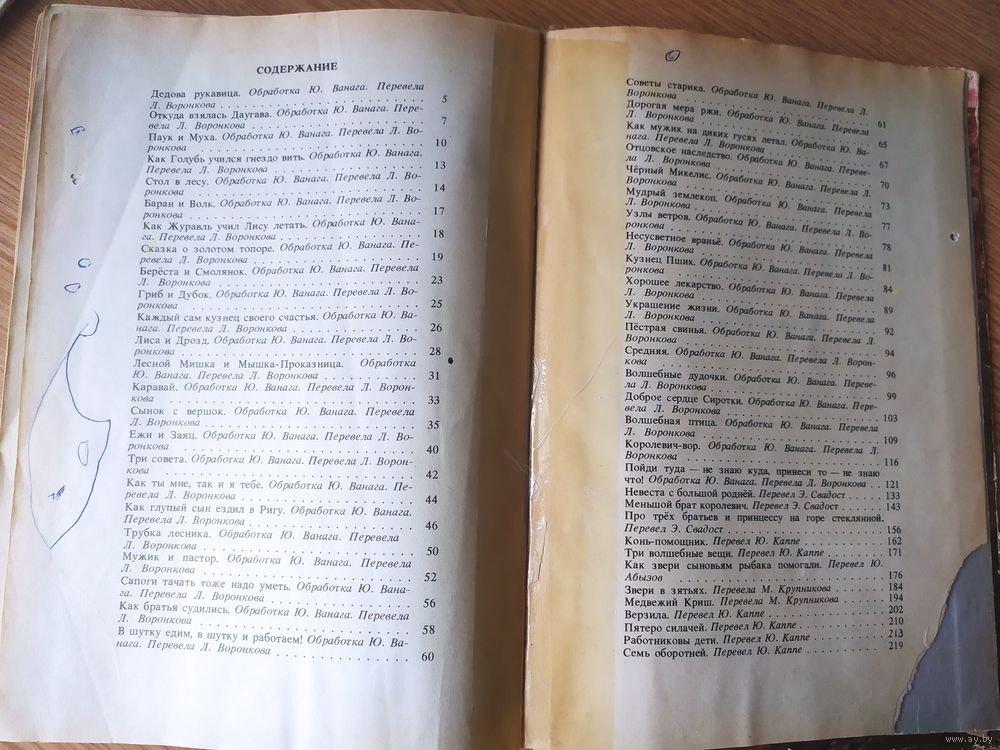 СОДЕРЖАНИЕ
Дедова рукавица. Обработка Ю. Ванага. Перевела
Л. Воронкова . . . . . . . . . . 5
Откуда взялась Даугава. Обработка Ю. Ванага. Пере-
вела Л. Воронкова . . . . . . . . . . 7
Паук и Муха. Обработка Ю. Ванага. Перевела Л. Во-
ронкова . . . . . . . . . . 10
Как Голубь учился гнездо вить. Обработка Ю. Ванага.
Перевела Л. Воронкова . . . . . . . . . . 13
Стол в лесу. Обработка Ю. Ванага. Перевела Л. Во-
ронкова . . . . . . . . . . 14
Баран и Волк. Обработка Ю. Ванага. Перевела Л. Во-
ронкова . . . . . . . . . . 17
Как Журавль учил Лису летать. Обработка Ю. Вана-
га. Перевела Л. Воронкова . . . . . . . . . . 18
Сказка о золотом топоре. Обработка Ю. Ванага. Пе-
ревела Л. Воронкова . . . . . . . . . . 19
Берёста и Смолянок. Обработка Ю. Ванага. Перевела
Л. Воронкова . . . . . . . . . . 23
Гриб и Дубок. Обработка Ю. Ванага. Перевела Л. Во-
ронкова . . . . . . . . . . 25
Каждый сам кузнец своего счастья. Обработка Ю. Ва-
нага. Перевела Л. Воронкова . . . . . . . . . . 26
Лиса и Дрозд. Обработка Ю. Ванага. Перевела Л. Во-
ронкова . . . . . . . . . . 28
Лесной Мишка и Мышка-Проказница. Обработка
Ю. Ванага. Перевела Л. Воронкова . . . . . . . . . . 31
Каравай. Обработка Ю. Ванага. Перевела Л. Ворон-
кова . . . . . . . . . . 33
Сынок с вершок. Обработка Ю. Ванага. Перевела
Л. Воронкова . . . . . . . . . . 35
Ежи и Заяц. Обработка Ю. Ванага. Перевела Л. Во-
ронкова . . . . . . . . . . 40
Три совета. Обработка Ю. Ванага. Перевела Л. Ворон-
кова . . . . . . . . . . 42
Как ты мне, так и я тебе. Обработка Ю. Ванага. Пе-
ревела Л. Воронкова . . . . . . . . . . 44
Как глупый сын ездил в Ригу. Обработка Ю. Ванага.
Перевела Л. Воронкова . . . . . . . . . . 46
Трубка лесника. Обработка Ю. Ванага. Перевела
Л. Воронкова . . . . . . . . . . 50
Мужик и пастор. Обработка Ю. Ванага. Перевела
Л. Воронкова . . . . . . . . . . 52
Сапоги тачать тоже надо уметь. Обработка Ю. Вана-
га. Перевела Л. Воронкова . . . . . . . . . . 56
Как братья судились. Обработка Ю. Ванага. Перевела
Л. Воронкова . . . . . . . . . . 58
В шутку едим, в шутку и работаем! Обработка Ю. Ва-
нага. Перевела Л. Воронкова . . . . . . . . . . 60
Советы старика. Обработка Ю. Ванага. Перевела Л.
Воронкова . . . . . . . . . . 61
Дорогая мера ржи. Обработка Ю. Ванага. Перевела
Л. Воронкова . . . . . . . . . . 65
Как мужик на диких гусях летал. Обработка Ю. Ва-
нага. Перевела Л. Воронкова . . . . . . . . . . 67
Отцовское наследство. Обработка Ю. Ванага. Переве-
ла Л. Воронкова . . . . . . . . . . 70
Чёрный Микелис. Обработка Ю. Ванага. Перевела Л.
Воронкова . . . . . . . . . . 73
Мудрый землекоп. Обработка Ю. Ванага. Перевела
Л. Воронкова . . . . . . . . . . 77
Узлы ветров. Обработка Ю. Ванага. Перевела Л. Во-
ронкова . . . . . . . . . . 78
Несусветное враньё. Обработка Ю. Ванага. Перевела
Л. Воронкова . . . . . . . . . . 81
Кузнец Пшик. Обработка Ю. Ванага. Перевела Л. Во-
ронкова . . . . . . . . . . 84
Хорошее лекарство. Обработка Ю. Ванага. Перевела
Л. Воронкова . . . . . . . . . . 89
Украшение жизни. Обработка Ю. Ванага. Перевела
Л. Воронкова . . . . . . . . . . 92
Пёстрая свинья. Обработка Ю. Ванага. Перевела Л.
Воронкова . . . . . . . . . . 94
Средняя. Обработка Ю. Ванага. Перевела Л. Ворон-
кова . . . . . . . . . . 96
Волшебные дудочки. Обработка Ю. Ванага. Переве-
ла Л. Воронкова . . . . . . . . . . 99
Доброе сердце Сиротки. Обработка Ю. Ванага. Пере-
вела Л. Воронкова . . . . . . . . . . 103
Волшебная птица. Обработка Ю. Ванага. Перевела
Л. Воронкова . . . . . . . . . . 109
Королевич-вор. Обработка Ю. Ванага. Перевела Л.
Воронкова . . . . . . . . . . 116
Пойди туда — не знаю куда, принеси то — не знаю
что! Обработка Ю. Ванага. Перевела Л. Воронкова . . 121
Невеста с большой роднёй. Перевел Э. Свадост . . 133
Меньшой брат королевич. Перевел Э. Свадост . . . 143
Про трёх братьев и принцессу на горе стеклянной.
Перевел Э. Свадост . . . . . . . . . . 156
Конь-помощник. Перевел Ю. Каппе . . . . . . . 162
Три волшебные вещи. Перевел Ю. Каппе . . . . . 171
Как звери сыновьям рыбака помогали. Перевел Ю.
Абызов . . . . . . . . . . 176
Звери в зятьях. Перевела М. Крупникова . . . . . 184
Медвежий Криш. Перевела М. Крупникова . . . . . 194
Верзила. Перевел Ю. Каппе . . . . . . . . . . 202
Пятеро силачей. Перевел Ю. Каппе . . . . . . . 210
Работниковы дети. Перевел Ю. Каппе . . . . . . 213
Семь оборотней. Перевел Ю. Каппе . . . . . . . 219
www.ay.by